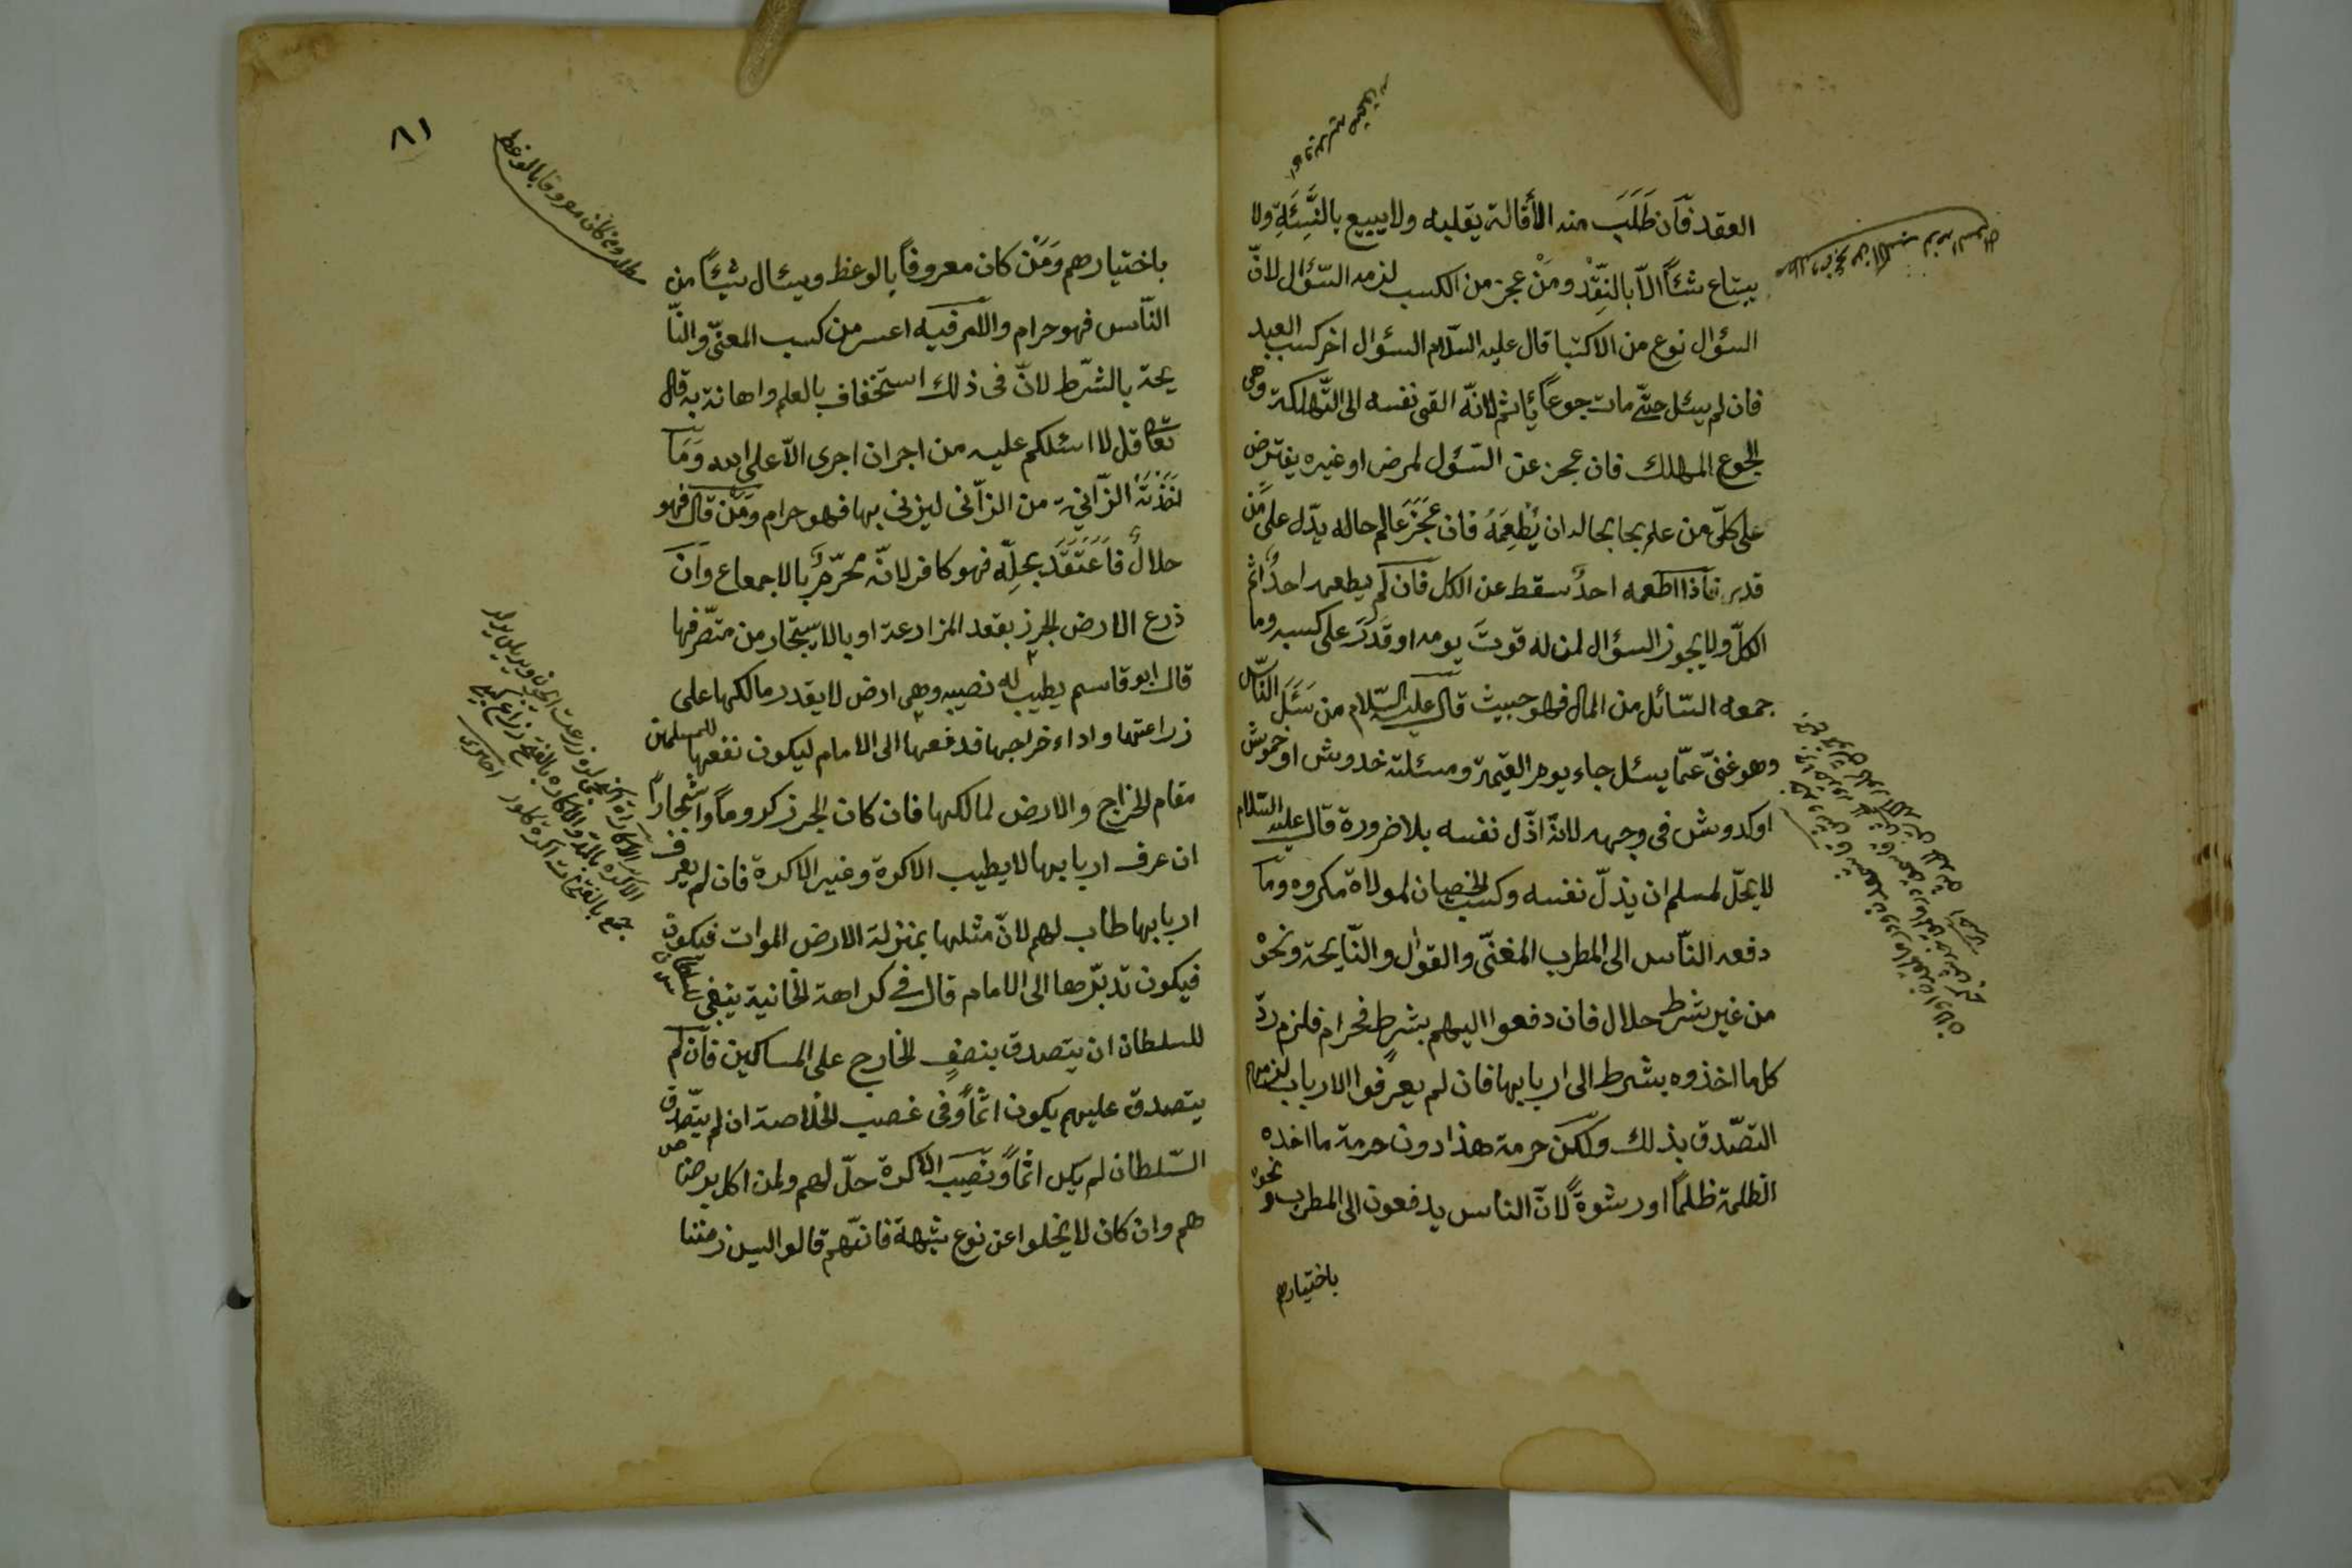 العقد فآن طَلَبَ منه الأقالة يقليه ولا يبيع بالنَّسِئَةِ ولا
يبتاع شئاً الّا بالنِّقْد ومَنْ عجز من الكسب لزمه السّؤال لانّ
السؤال نوع من الاكتبا قال عليه السّلام السؤال اخر كسب العبد
فان لم يسئل حتّى مات جوعاً يأثم لانّه القى نفسه الى التّهلكة وهى
الجوع المهلك فان عجز عن السّؤل لمرض او غيره يفترض
على كلّ من علم بحا بحاله ان يُطْعِمَهُ فان عَجَزَ عالم حاله يدّل على مَن
قدر فآذا اطعمه احدٌ سقط عن الكل فآن لم يطعمه احدٌ اثم
الكلّ ولا يجوز السؤال لمن له قوتَ يومه او قَدَرَ على كسبه وما
جمعه السّائل من المال فهو حبيث قال عليه السّلام من سَئَلَ النّاس
وهو غنىّ عمّا يسئل جاء يوم القيمة ومسئلته خدوش او خموش
او كدوش فى وجهه لانّه اذّل نفسه بلا ضرورة قال عليه السّلام
لا يحلّ لمسلم ان يذلّ نفسه وكسب الخصيان لمولاة مكروه ومآ
دفعه النّاس الى المطرب المغنّى والقوال والنّايحة ونحوْ
من غير شرط حلال فان دفعوا اليهم بشرطٍ فحرام فلزم ردّ
كل ما اخذوه بشرط الى اربابها فان لم يعرفوا الارباب لزمهم
التصّدق بذلك ولكن حرمة هذا دون حرمة ما اخذه
الظلمة ظلماً او رشوةً لانّ الناس يدفعون الى المطرب ونحوه
باختيارهم
٨١
مط ومن كان معروفا بالوعظ
باختيارهم ومَنْ كان معروفاً بالوعظ ويسئال شيئاً من
النّاس فهو حرام والامر فيه اعسر من كسب المغنىّ والنّا
يحة بالشّرط لانّ فى ذلك استخفاف بالعلم واهانة به قال
تعآ قل لا اسئلكم عليه من اجر ان اجرى الّا على الله وَمَا
اَخَذَتْهُ الزّانية من الزّانى ليزنى بها فهو حرام ومَنْ قال فهو
حلالٌ فاَعْتَقَدَ بحِلِّه فهو كافر لانّه محرّمٌ بالاجمعاع وآن
ذرع الارض الجرز بعقد المزارعة او بالاستيجار من متّصرفها
قال ابو قاسم يطيب له نصيبه وهى ارض لا يقدر مالكها على
زراعتها واداء خراجها فدفعها الى الامام ليكون نفعها للمسلمين
مقام الخراج والارض لمالكها فان كان الجرز كروماً واشجاراً
ان عرف اربابها لا يطيب الاكرة وغير الاكرة فان لم يعرف
اربابها طاب لهم لانّ مثلها بمنزلة الارض الموات فيكون
فيكون تدبّرها الى الامام قال فى كراهة الخانية ينبغى
للسلطان ان يتصدق بنصف الخارج على المساكين فآن لم
يتصدق عليهم يكون اثماً وفى غصب الخلاصة ان لم يتّصدق
السّلطان لم يكن اثماً ونصيب الاكرة حلّ لهم ولمن اكل برضا
هم وان كان لا يخلوا عن نوع شبهة فانّهم قالوا ليس زمننا